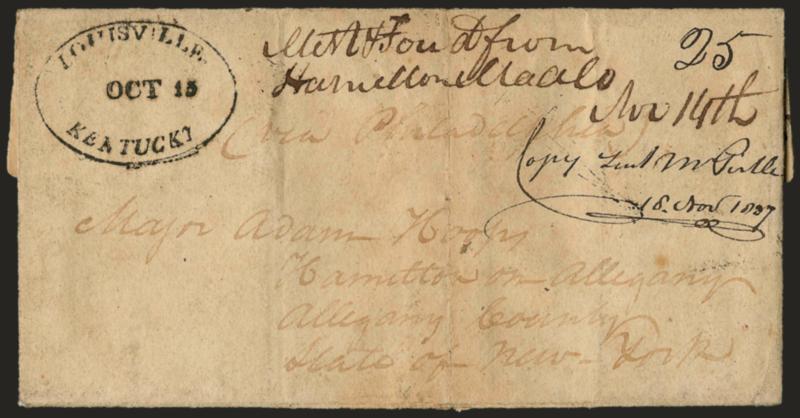 LOUISVILLE.
OCT 15
KENTUCKY
Miss't & For'd from
Hamilton
25
Nov 14th
(via Philadelphia)
Copy Sent
18. Nov. 1837
Major Adam Hoops
Hamilton on Allegany
Allegany County
State of New-York